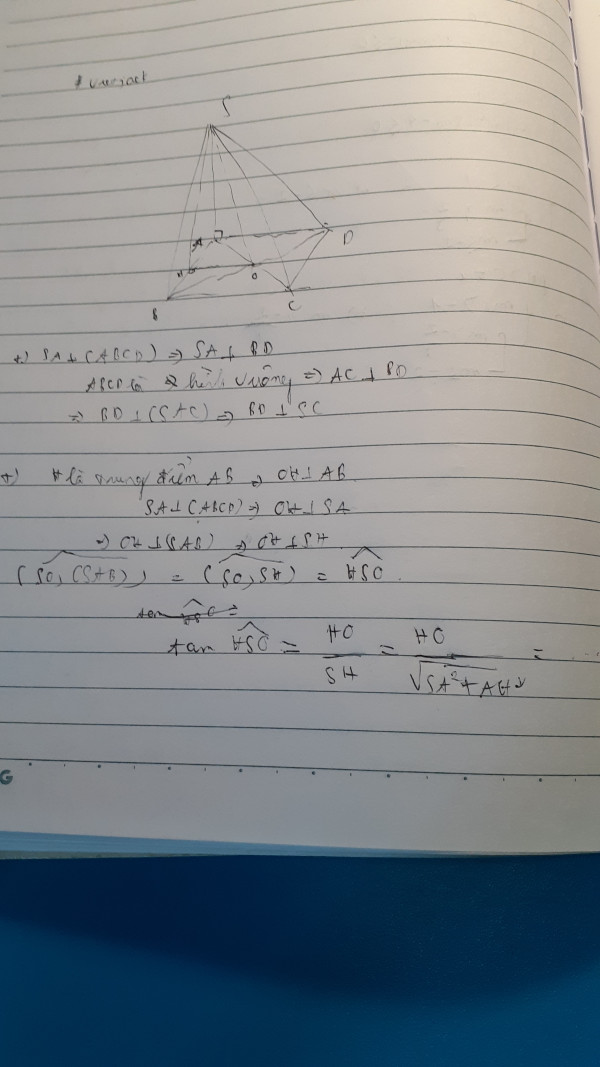 S
A
D
H
O
B
C
+) SA ⊥ (ABCD) => SA ⊥ BD
ABCD là hình vuông => AC ⊥ BD
=> BD ⊥ (SAC) => BD ⊥ SC
+) H là trung điểm AB => OH ⊥ AB
SA ⊥ (ABCD) => OH ⊥ SA
=> OH ⊥ (SAB) => OH ⊥ SH
(SO, (SAB)) = (SO, SH) = HSO.
tan HSO = HO / SH = HO / √(SA² + AH²) = ...
G